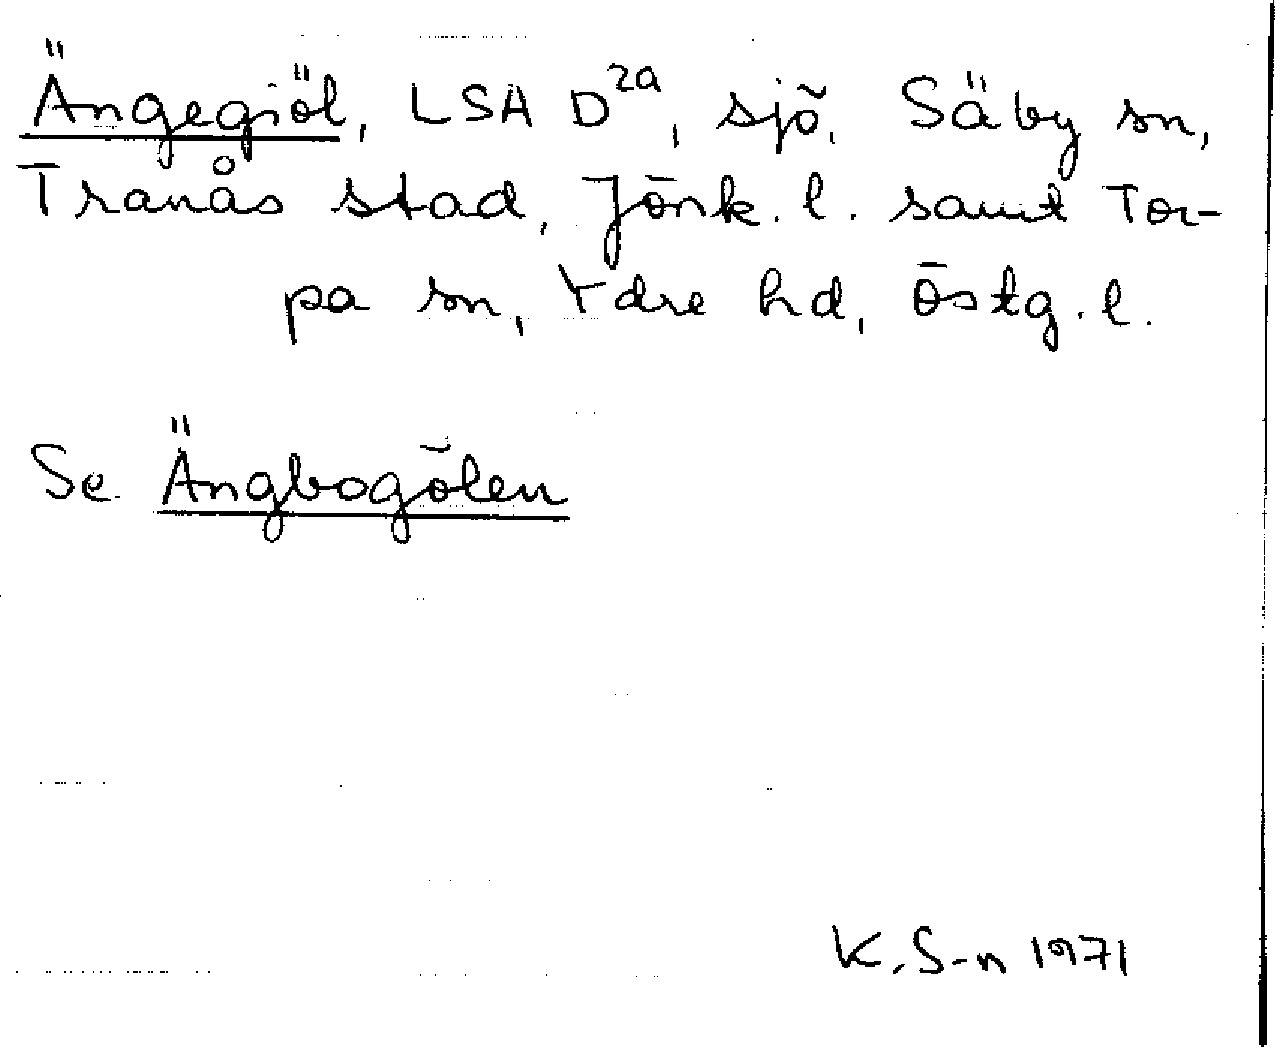 Ängegiöl, LSA D2a, sjö, Säby sn,
Tranås stad, Jönk. l. samt Tor-
pa sn, Ydre hd, Östg. l.
Se Ängbogölen
K. S-n 1971